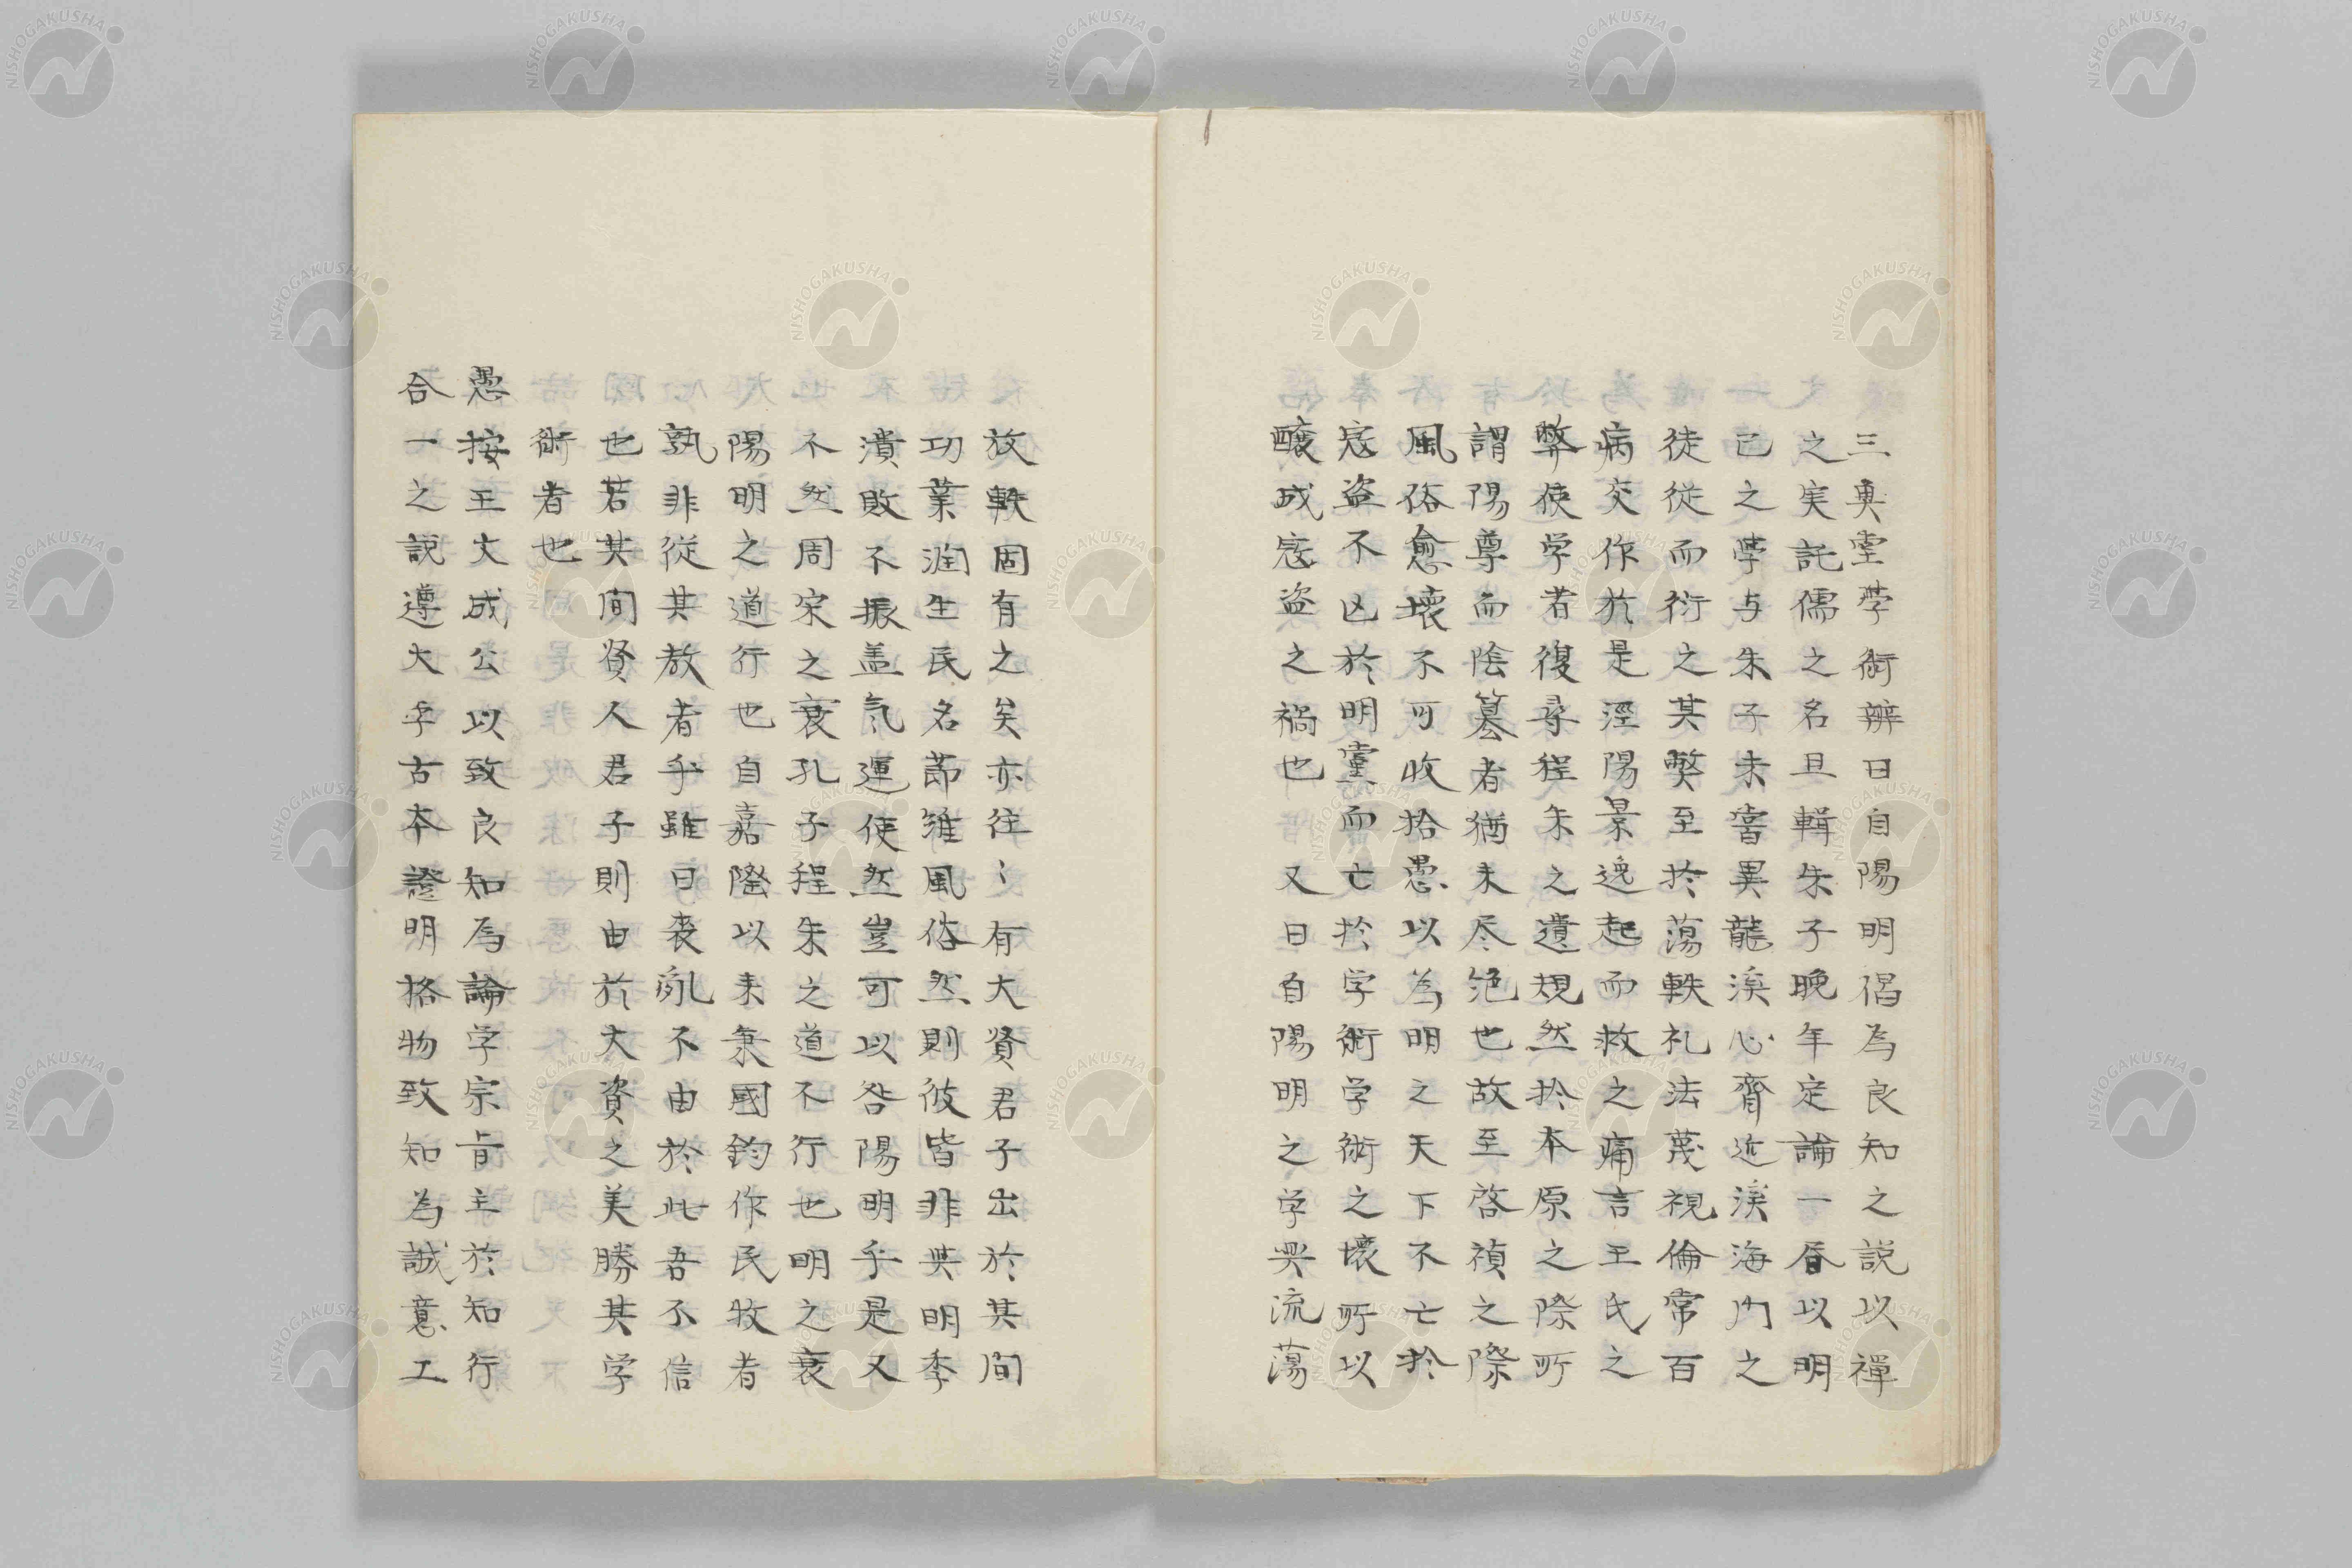 三魚堂學術辨曰自陽明倡為良知之説以禪
之实託儒之名且輯朱子晚年定論一昏以明
己之學与朱子未嘗異龍溪心齋近溪海门之
徒從而衍之其弊至於蕩軼礼法蔑視倫常百
病交作於是涇陽景逸起而救之痛言王氏之
弊使学者復尋程朱之遺規然於本原之際所
謂陽尊而陰簒者猶未尽絶也故至啓禎之際
風俗愈壊不可收拾愚以為明之天下不亡於
寇盗不亡於朋黨而亡於学術学術之壊所以
釀成寇盗之禍也又曰自陽明之学興流蕩
放軼固有之矣亦往〻有大賢君子出於其間
功業潤生民名節維風俗然則彼皆非與明季
潰敗不振盖氣運使然豈可以咎陽明乎是又
不然周宋之衰孔子程朱之道不行也明之衰
陽明之道行也自嘉隆以来秉國鈞作民牧者
孰非從其教者乎雖曰喪乱不由於此吾不信
也若其間賢人君子則由於大資之美勝其学
術者也
愚按王文成公以致良知為論学宗旨主於知行
合一之説遵大学古本證明格物致知為誠意工
NISHOGAKUSHA